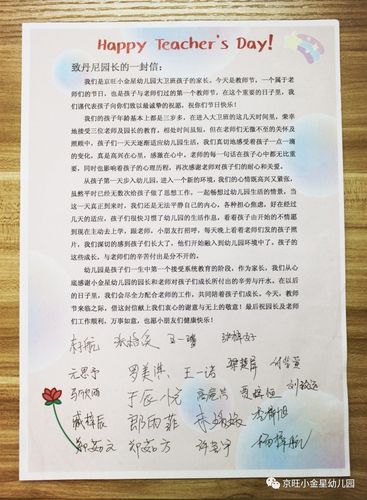 Happy Teacher's Day!
致丹尼园长的一封信：
我们是京旺小金星幼儿园大卫班孩子的家长，今天是教师节，一个属于老
师们的节日，也是孩子与老师们过的第一个教师节，在这个重要的日子里，我
们谨代表孩子向你们致以最诚挚的祝愿，祝你们节日快乐！
我们的孩子年龄基本上都是三岁多，在进入大卫班的这几天时间里，荣幸
地接受三位老师及园长的教育，相处时间虽短，但在老师们无微不至的关怀及
照顾中，孩子们一天天逐渐适应幼儿园生活，我们真切地感受着孩子一点一滴
的变化，真是高兴在心里，感激在心中。老师的每一句话在孩子心中都无比重
要，同时也影响着孩子的心理历程，再次感谢老师对孩子们的耐心和关爱。
从孩子第一天步入幼儿园，进入一个新的环境，我们的心情既高兴又紧张，
虽然平时已经无数次给孩子做了思想工作，一起畅想过幼儿园生活的情景，当
这一天真正到来时，我们还是无法平静自己的内心，各种担心焦虑，好在经过
几天的适应，孩子们很快习惯了幼儿园的生活作息，看着孩子由开始的不情愿
到现在主动去上学，跟老师，小朋友打招呼，每天晚上看着老师们发的孩子照
片，我们深切的感到孩子们长大了，他们开始融入到幼儿园环境中了。孩子的
这些成长，与老师们的辛苦付出是分不开的。
幼儿园是孩子们一生中第一个接受系统教育的阶段，作为家长，我们从心
底感谢小金星幼儿园的园长和老师对孩子们成长所付出的辛劳与汗水，在以后
的日子里，我们会尽全力配合老师的工作，共同陪着孩子们成长。今天，教师
节来临之际，借这封信献上我们衷心的谢意与无上的敬意！最后祝园长及老师
们工作顺利，万事如意，也愿小朋友们健康快乐！
元思予 罗美淇 王一诺
郑茹文 郑茹方 杨梓航
京旺小金星幼儿园